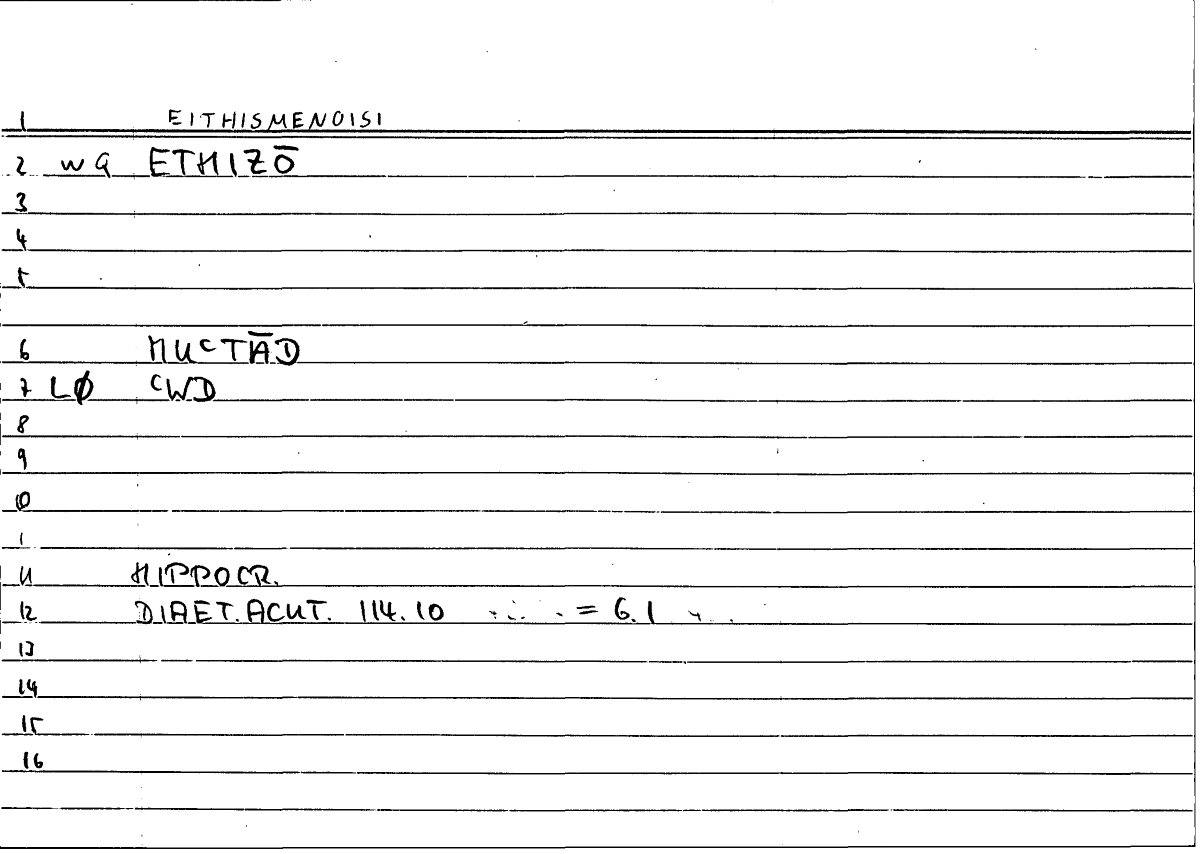 1 EITHISMENOISI
2 WG ETHIZŌ
3
4
5
6 MUCTĀD
7 LØ CWD
8
9
10
1
11 HIPPOCR.
12 DIAET. ACUT. 114.10 = 6.1
13
14
15
16